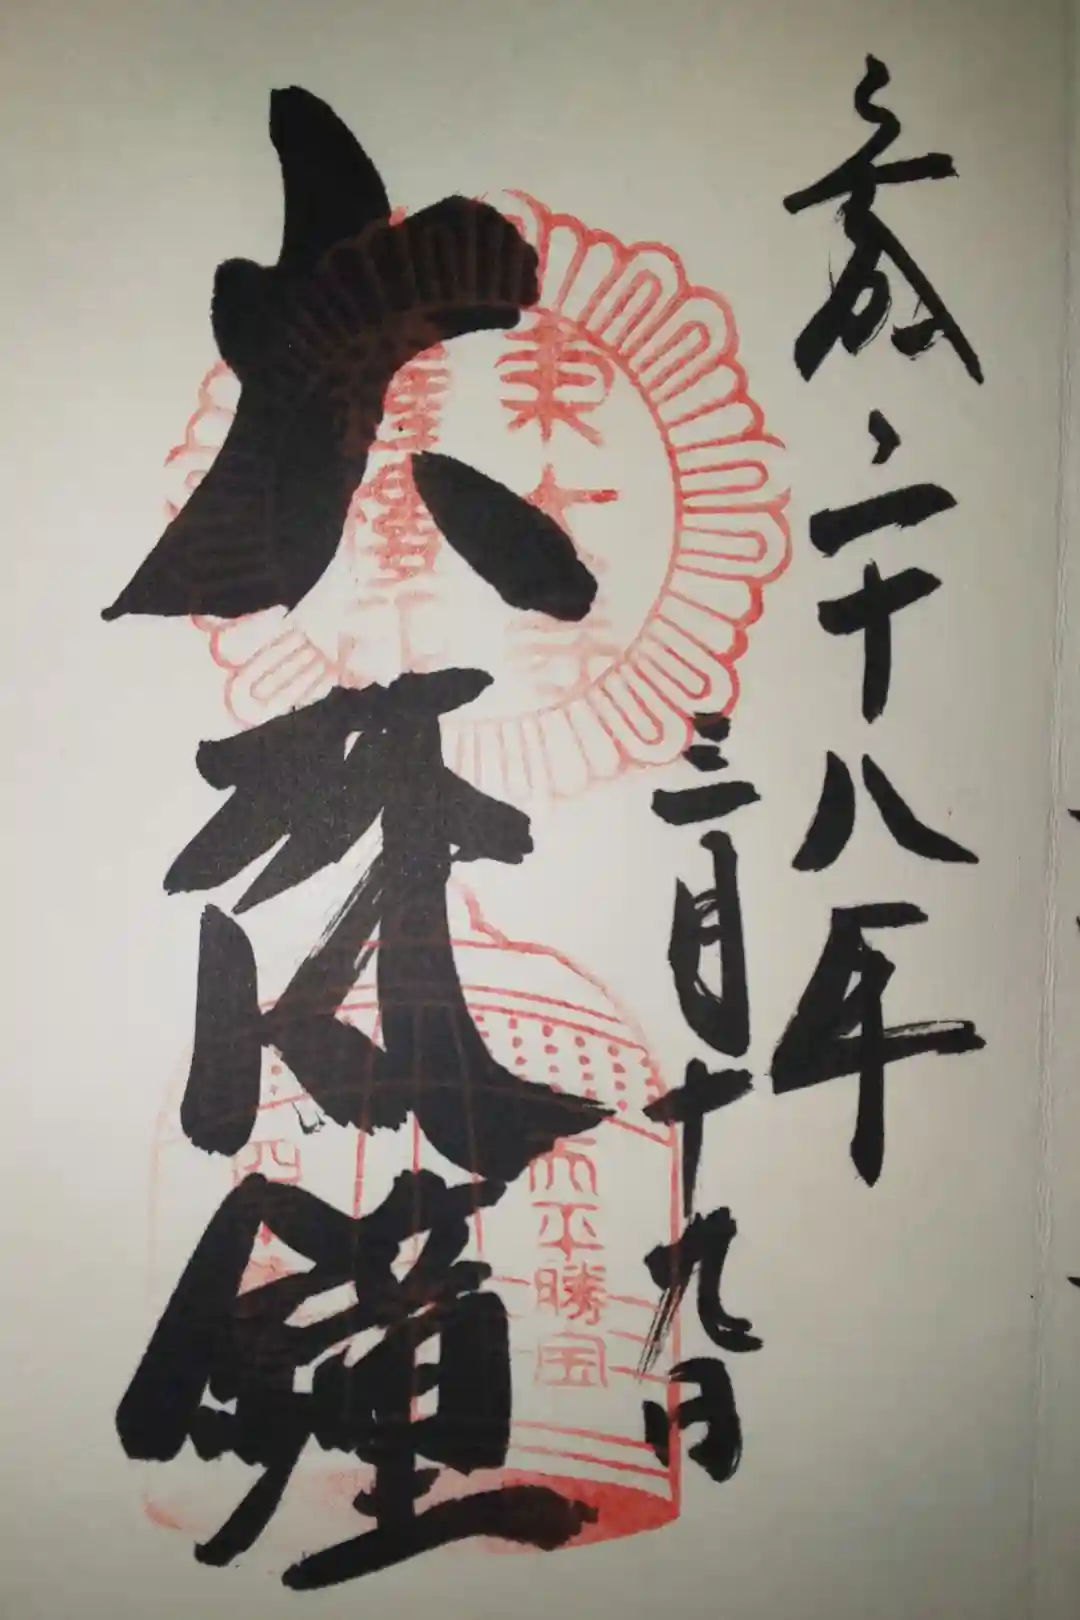 二十八年
三月十九日
大梵鐘
東大寺
天平勝宝